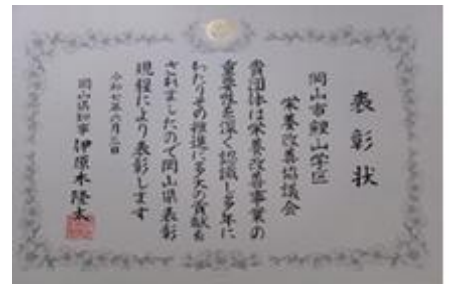 表彰状
岡山市鯉山学区
栄養改善協議会
貴団体は栄養改善事業の
重要性を深く認識し多年に
わたりその推進に多大の貢献を
されましたので岡山県表彰
規程により表彰します
令和七年六月三日
岡山県知事 伊原木隆太